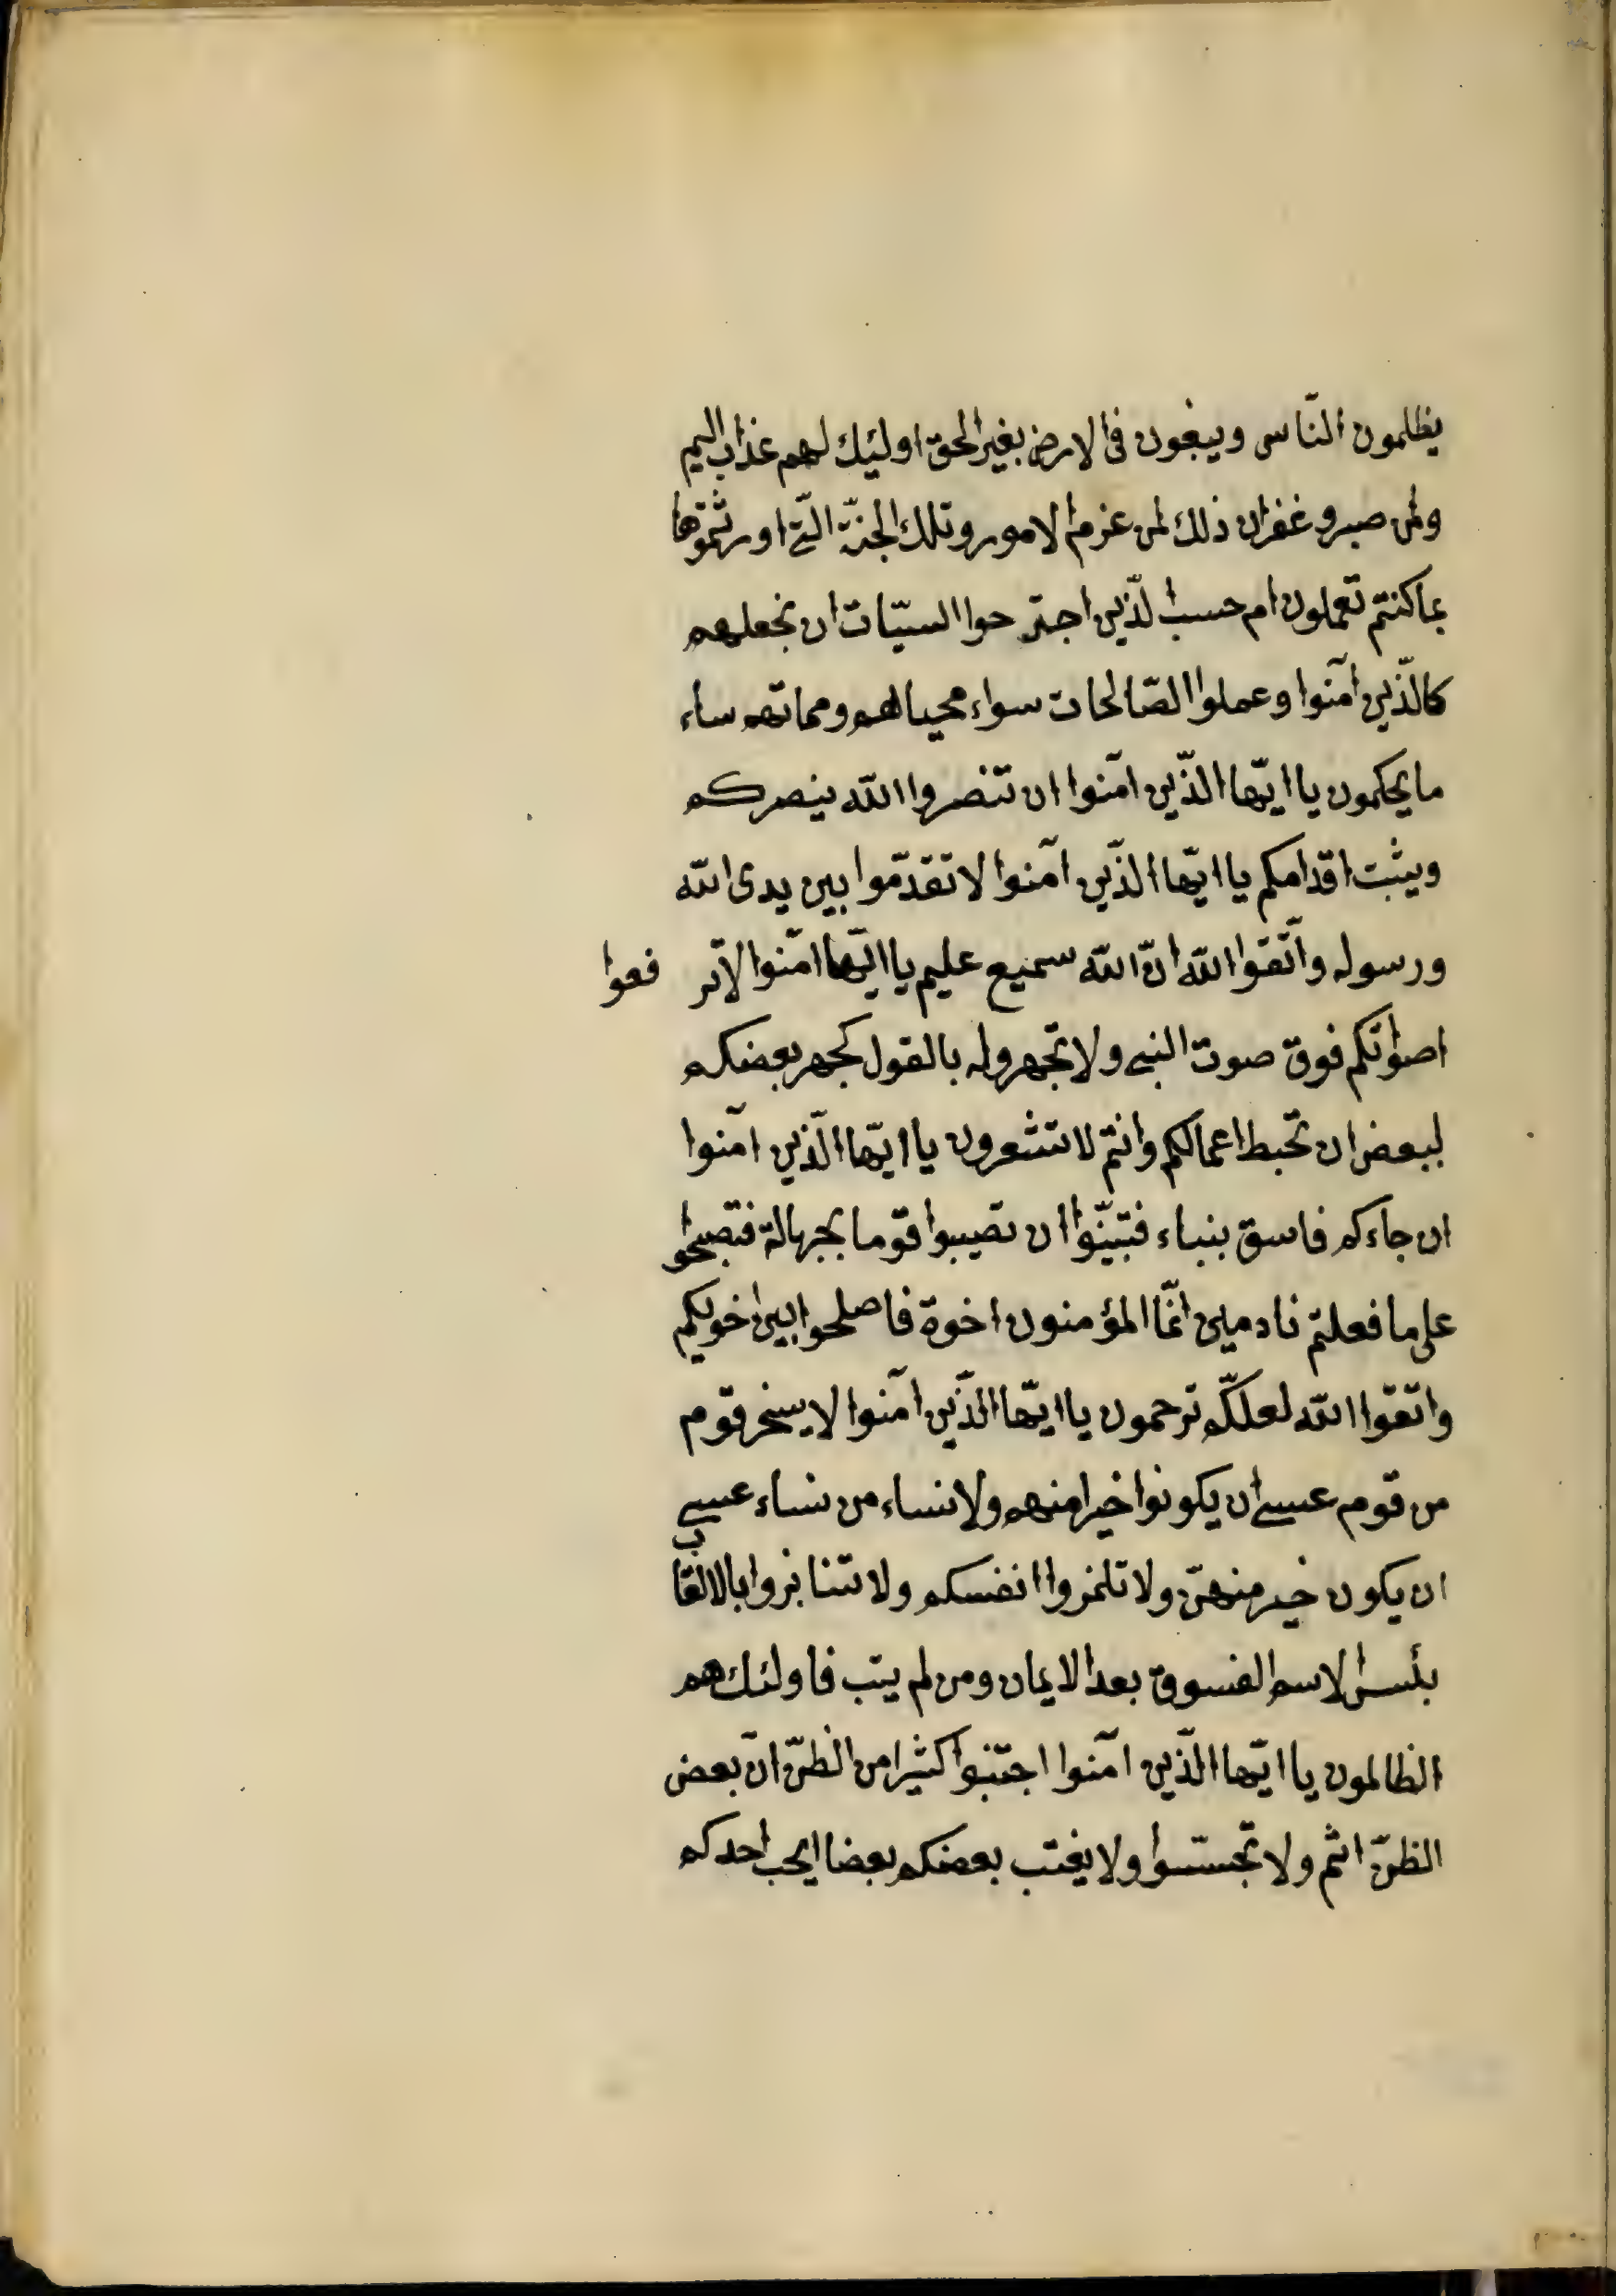 يظلمون النّاس ويبغون فى الارض بغير الحق اوليئك لهم عذاب اليم
ولمن صبر وغفر ان ذلك لمن عزم الامور وتلك الجنّة الّتى اورثتموها
بما كنتم تعملون ام حسب الّذين اجترحوا السيّات ان نجعلهم
كالّذين آمنوا وعملوا الصّالحات سواء محياهم ومماتهم ساء
ما يحكمون يا ايّها الّذين آمنوا ان تنصروا اللّه ينصركم
ويثبت اقدامكم يا ايّها الّذين آمنوا لا تقدّموا بين يدى اللّه
ورسوله واتّقوا اللّه انّ اللّه سميع عليم يا ايّها آمنوا لا ترفعوا
اصواتكم فوق صوت النبى ولا تجهروله بالقول كجهر بعضكم
لبعض ان تحبط اعمالكم وانتم لا تشعرون يا ايّها الّذين آمنوا
ان جاءكم فاسق بنباء فتبيّنوا ان تصيبوا قوما بجهالة فتصبحوا
على ما فعلتم نادمين انّما المؤمنون اخوة فاصلحوا بين اخويكم
واتّقوا اللّه لعلكّم ترحمون يا ايّها الّذين آمنوا لا يسخر قوم
من قوم عسى ان يكونوا خيرا منهم ولا نساء من نساء عسى
ان يكون خير منهنّ ولا تلمزوا انفسكم ولا تتنابزوا بالالقاب
بئس الاسم الفسوق بعد الايمان ومن لم يتب فاولئك هم
الظالمون يا ايّها الّذين آمنوا اجتنبوا كثيرا من الظنّ انّ بعض
الظنّ اثم ولا تجسّسوا ولا يغتب بعضكم بعضا ايحب احدكم